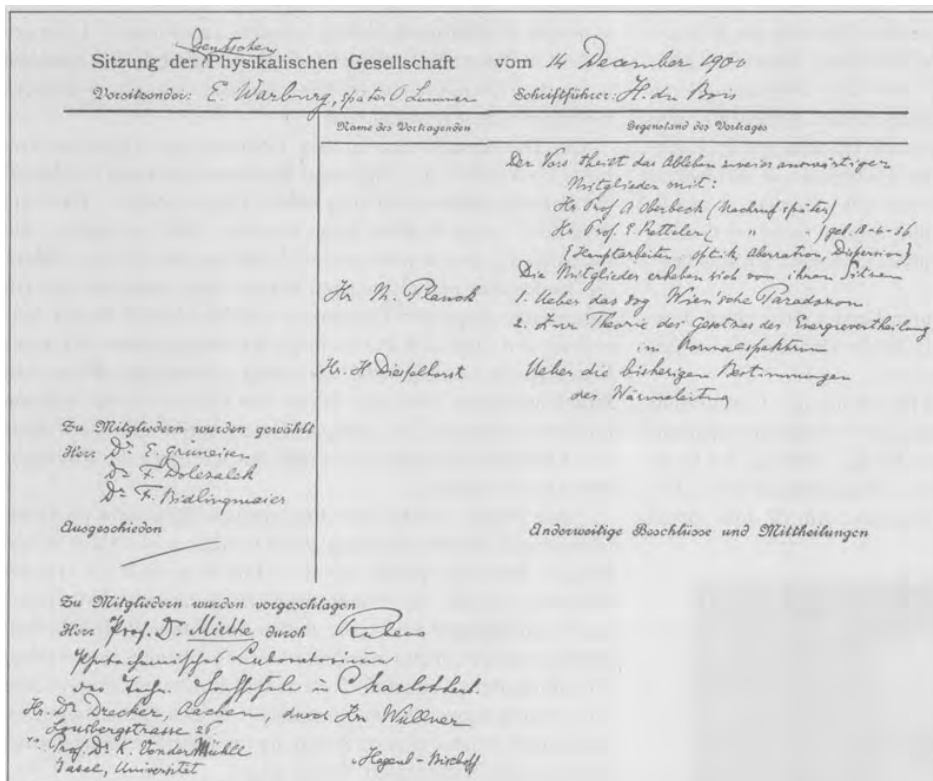 Deutschen
Sitzung der Physikalischen Gesellschaft vom 14 December 1900
Vorsitzender: E. Warburg, später O Lummer Schriftführer: H. du Bois
Name des Vortragenden Gegenstand des Vortrages
Der Vors theilt das Ableben zweier auswärtiger
Mitglieder mit:
Hr Prof A Oberbeck (Nachruf später)
Hr Prof. E. Ketteler ( " )
(Hauptarbeiten optik, Aberration, Dispersion)
Die Mitglieder erheben sich von ihren Sitzen
Hr M. Planck 1. Ueber das sog Wien'sche Paradoxon
2. Zur Theorie des Gesetzes der Energievertheilung
im Normalspektrum
Hr. H Diesselhorst Ueber die bisherigen Bestimmungen
der Wärmeleitung
Zu Mitgliedern wurden gewählt
Herr Dr E. Gruneisen
Dr F. Dolezalek
Dr F. Bidlingmaier
Ausgeschieden Anderweitige Beschlüsse und Mittheilungen
Zu Mitgliedern wurden vorgeschlagen
Herr Prof. Dr. Miethe durch Rubens
Photochemisches Laboratorium
der Techn. Hochschule in Charlottenb.
Hr. Dr Drecker, Aachen, durch Hrn Wüllner
Lousbergstrasse 26
" Prof. Dr K. VonderMühll
Basel, Universität " Hagenb-Bischoff